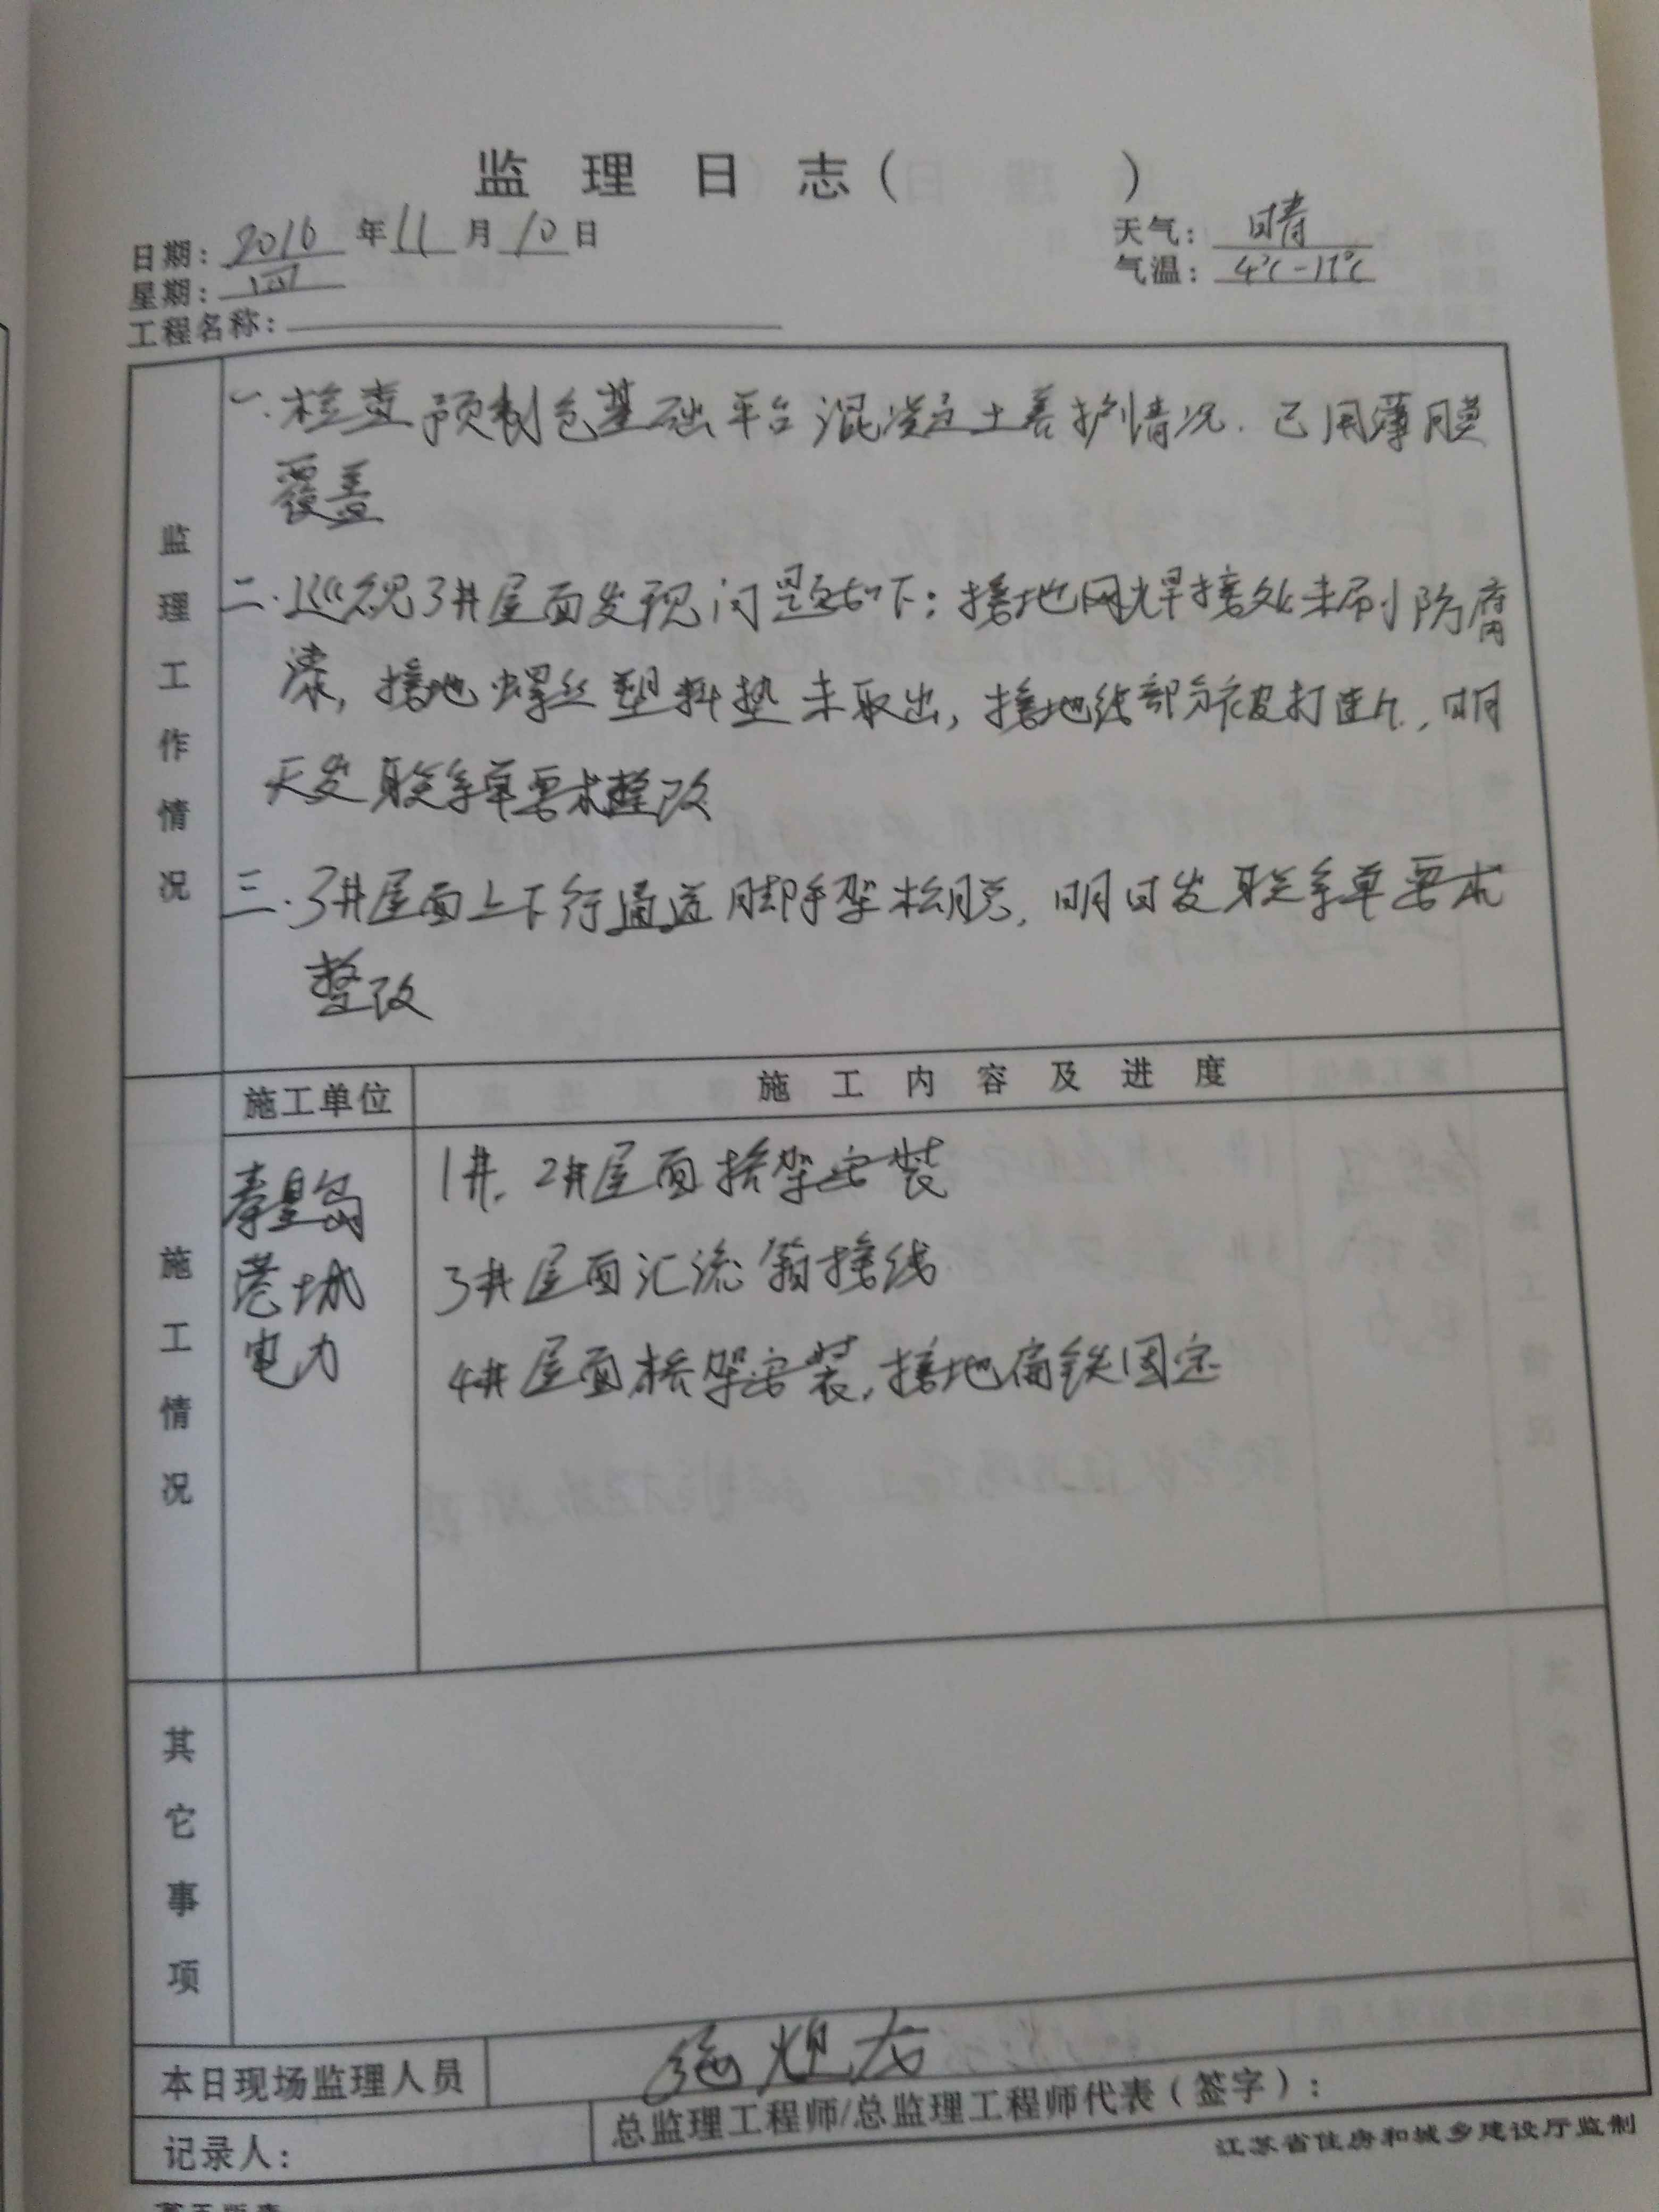 监理日志( )
日期: 2016 年 11 月 10 日
天气: 晴
星期: 四
气温: 4℃-17℃
工程名称:
监理工作情况
一.检查预制仓基础平台混凝土养护情况.已用薄膜
覆盖
二.巡视3#屋面发现问题如下:接地网焊接处未刷防腐
漆,接地螺丝塑料垫未取出,接地线部分被打连片,明
天发联系单要求整改
三.3#屋面上下行通道脚手架松脱,明日发联系单要求
整改
施工单位
施工内容及进度
施工情况
秦皇岛
港城
电力
1#.2#屋面桥架安装
3#屋面汇流箱接线
4#屋面桥架安装,接地扁铁固定
其它事项
本日现场监理人员
记录人:
总监理工程师/总监理工程师代表(签字):
江苏省住房和城乡建设厅监制